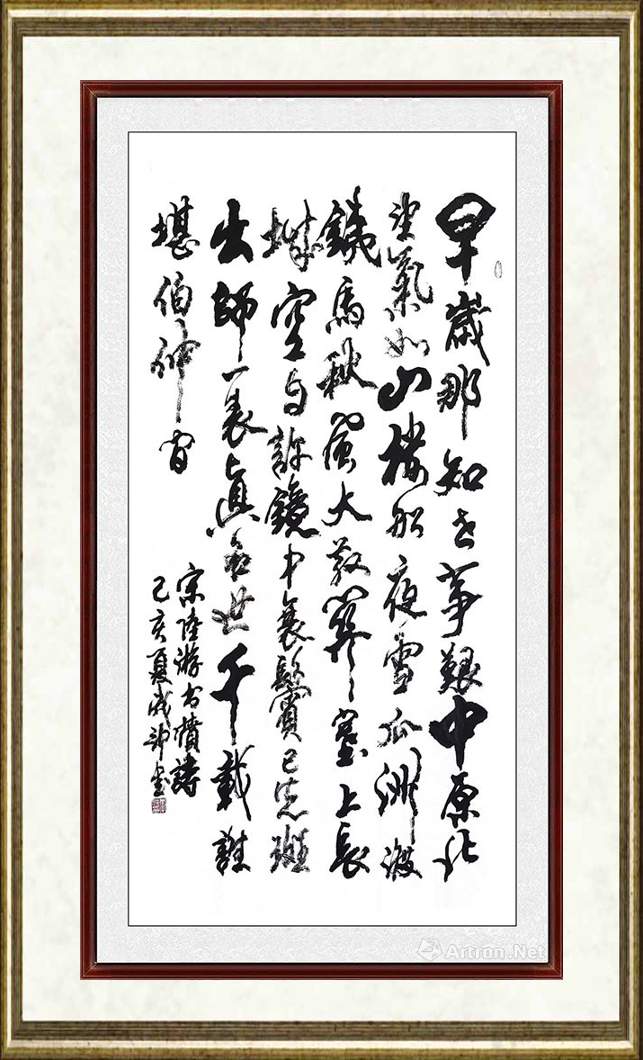 早歲那知世事艱中原北
望氣如山樓船夜雪瓜洲渡
鐵馬秋風大散關塞上長
城空自許鏡中衰鬢已先斑
出師一表真名世千載誰
堪伯仲間
宋陸游書憤詩
己亥夏
Artron.Net